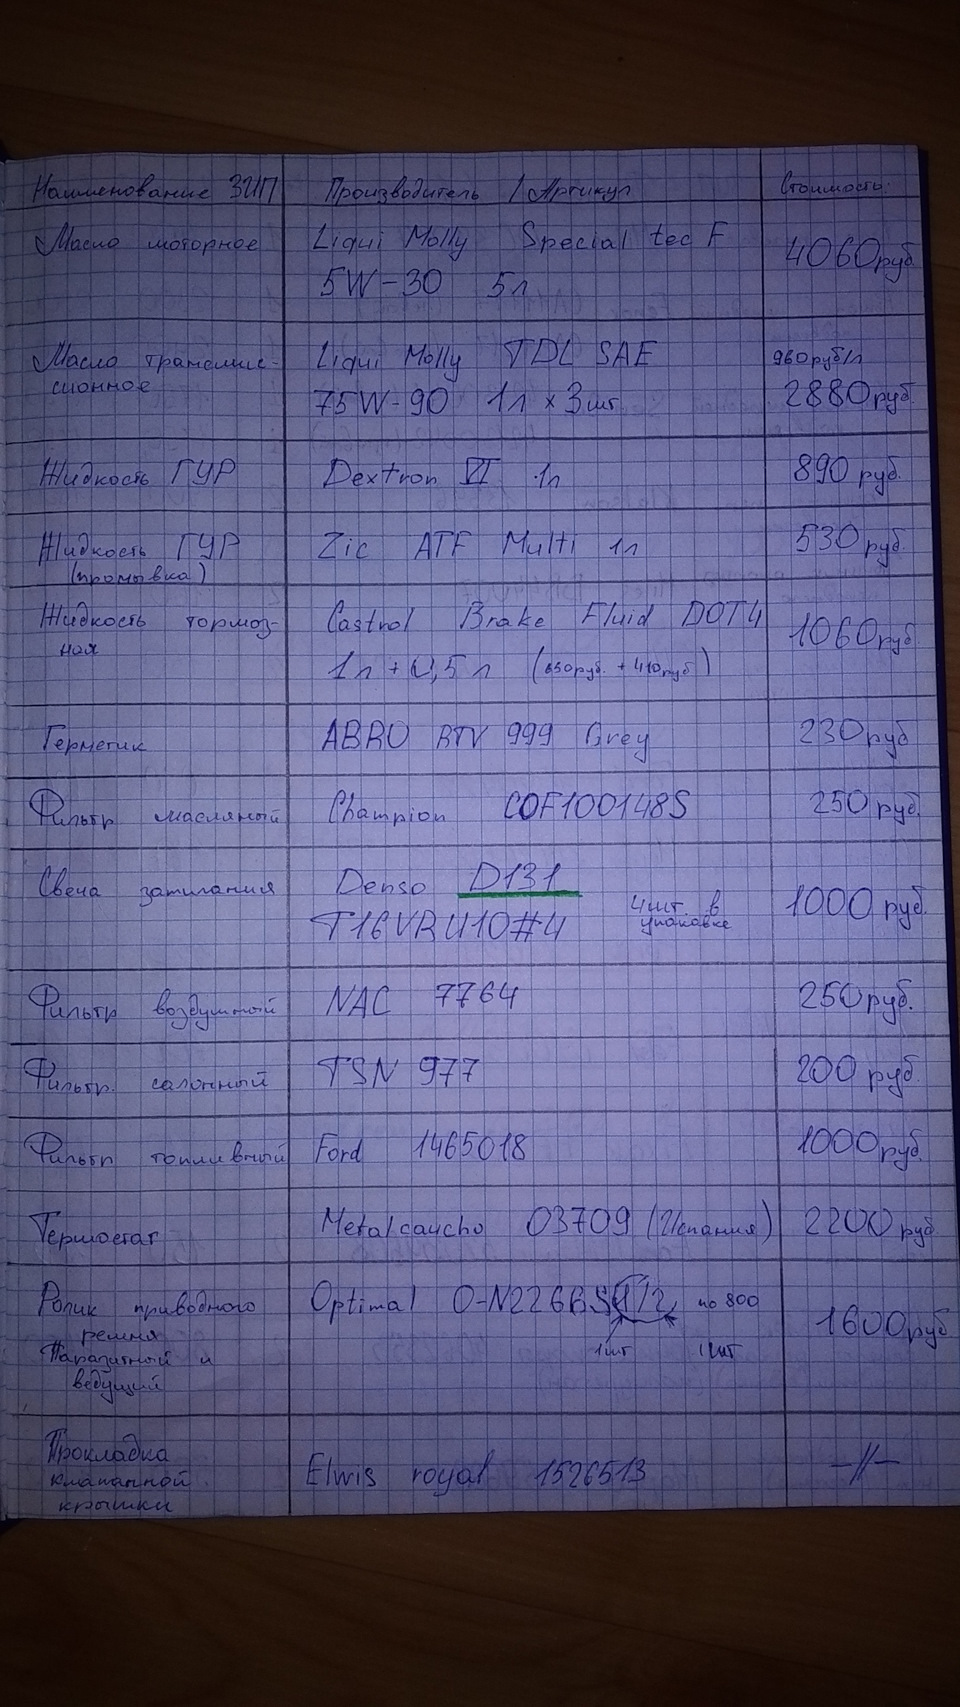 Наименование ЗИП Производитель / Артикул Стоимость
Масло моторное Liqui Molly Special tec F 4060 руб.
5W-30 5л
Масло трансмис- Liqui Molly TDL SAE 960руб/л
сионное 75W-90 1л x 3шт 2880 руб.
Жидкость ГУР Dextron VI 1л 890 руб.
Жидкость ГУР Zic ATF Multi 1л 530 руб.
(промывка)
Жидкость тормоз- Castrol Brake Fluid DOT4 1060 руб
ная 1л + 0,5л (650руб. + 410руб)
Герметик ABRO RTV 999 Grey 230 руб
Фильтр масляный Champion COF100148S 250 руб.
Свеча зажигания Denso D131 1000 руб.
T16VR-U10#4 4шт. в
упаковке
Фильтр воздушный NAC 7764 250 руб.
Фильтр салонный TSN 977 200 руб.
Фильтр топливный Ford 1465018 1000 руб.
Термостат Metalcaucho 03709 (Испания) 2200 руб
Ролик приводного Optimal по 800 1600 руб
ремня
Паразитный и 1шт 1шт
ведущий
Прокладка
клапанной Elwis royal 1526513 -//-
крышки